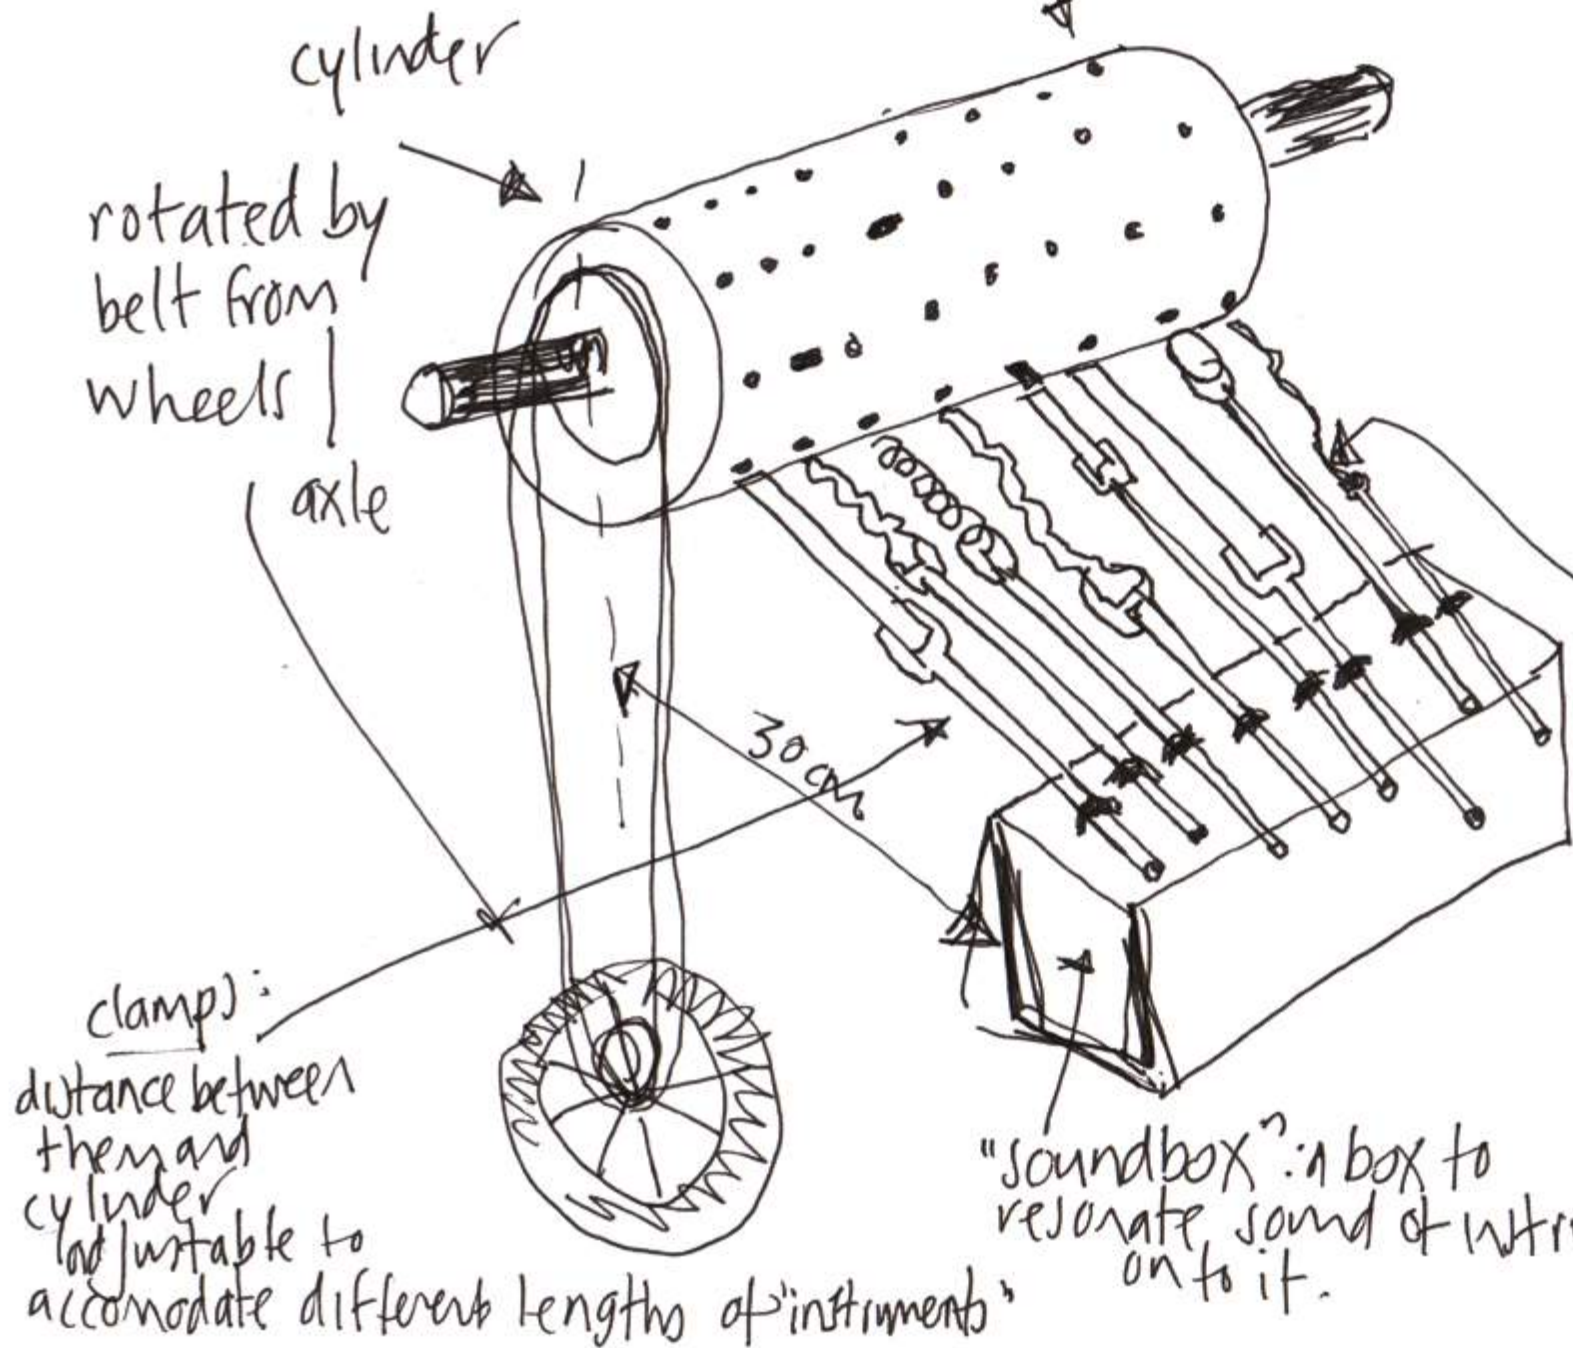 cylinder
rotated by
belt from
wheels
axle
30 cm
clamps:
distance between
them and
cylinder
adjustable to
accomodate different lengths of "instruments"
"soundbox": a box to
resonate sound of
onto it.